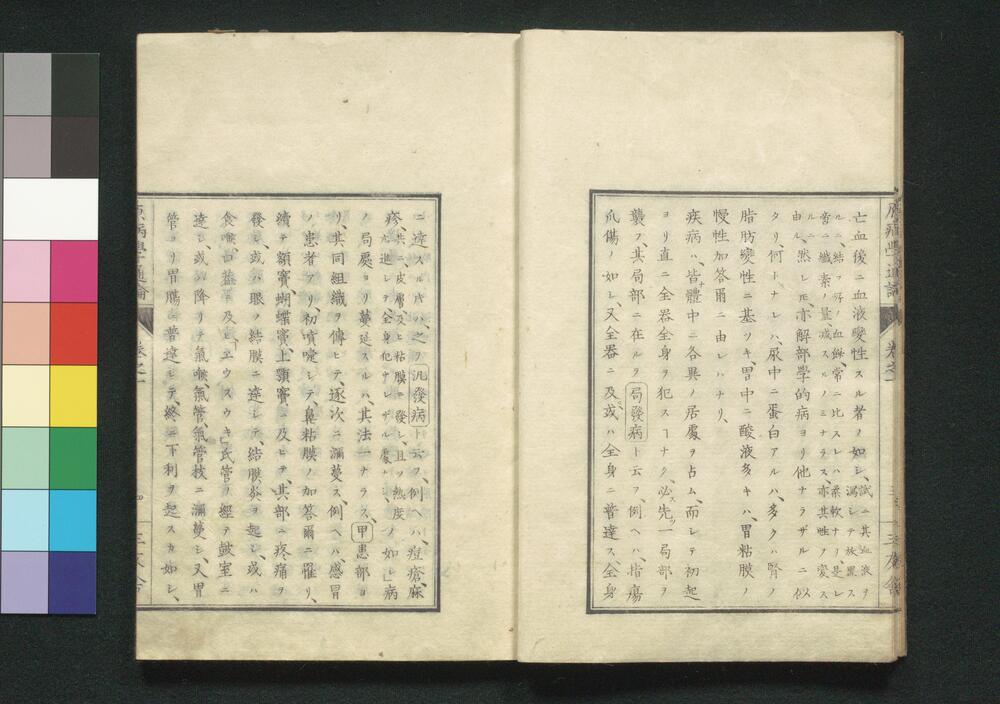 亡血後ニ血液變性スル者ノ如シ、試ニ其血液ヲ
瀉シテ放置スルニ、結フ所ノ血餅、常ニ比スレハ柔軟ナリ、是レ
啻ニ纖素ノ量、減スルノミナラス、亦其性ノ變スルニ
由ル、然レ𪜈、亦解部學的病ヨリ他ナラザルニ似
タリ、何トナレハ、尿中ニ蛋白アルハ、多クハ腎ノ
脂肪變性ニ基ツキ、胃中ニ酸液多キハ、胃粘膜ノ
慢性加答爾ニ由レハナリ、
疾病ハ、皆體中ニ各異ノ居處ヲ占ム、而シテ初起
ヨリ直ニ全器全身ヲ犯スヿナク、必先一局部ヲ
襲フ、其局部ニ在ルヲ局發病ト云フ、例ヘハ、指瘍
爪傷ノ如シ、又全器ニ及或ハ全身ニ普達ス、全身
原病學通論
卷之一
三友舍
ニ達スル𪜈ハ、之ヲ汎發病ト云フ、例ヘハ、痘瘡、麻
疹、共ニ皮膚及ヒ粘膜ニ發シ、且ツ熱度
亢進シテ全身犯サレザル處ナシ、ノ如シ」病
ノ局處ヨリ蔓延スルハ、其法一ナラス、甲患部ヨ
リ、其同組織ヲ傳ヒテ、逐次ニ瀰蔓ス、例ヘハ、感冒
ノ患者アリ、初噴嚏シテ、鼻粘膜ノ加答爾ニ罹リ、
續テ額竇、蝴蝶竇、上顎竇ニ及ヒテ、其部ニ疼痛ヲ
發シ、或ハ眼ノ結膜ニ達シテ、結膜炎ヲ起シ、或ハ
食喉口蓋ニ及ヒ「エウスタキ」氏管ヲ經テ鼓室ニ
達シ、或ハ降リテ氣喉、氣管、氣管枝ニ瀰蔓シ、又胃
管ヨリ胃腸ニ普達シテ、終ニ下利ヲ起スカ如シ、
原病學通論
卷之一
三友舍